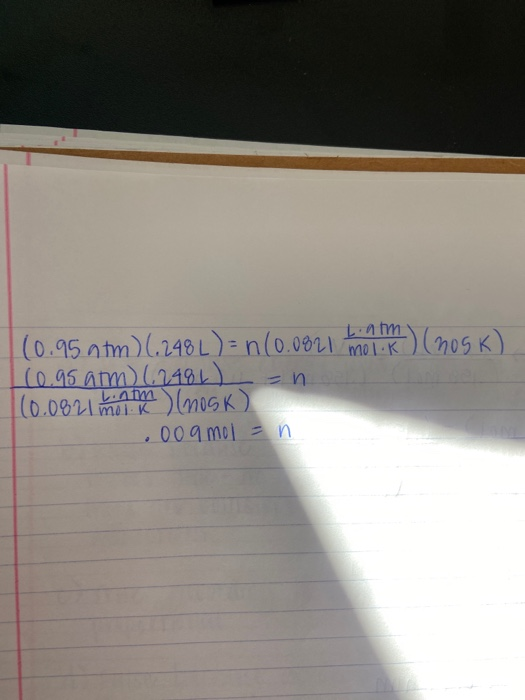 (0.95 atm)(.248L) = n(0.0821 L·atm/mol·K)(305K)
(0.95 atm)(.248L)/(0.0821 L·atm/mol·K)(305K) = n
.009mol = n